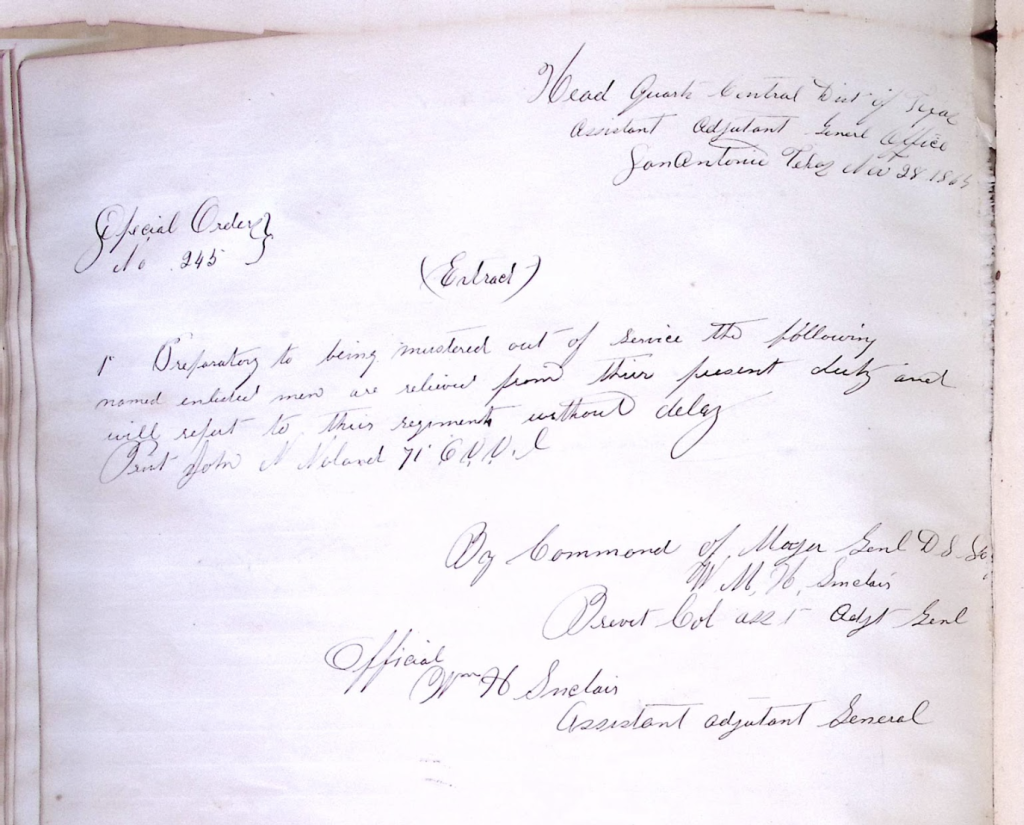 Head Quarts Central Dist of Texas
Assistant Adjutant General Office
San Antonio Texas Nov 28 1865
Special Orders
No 245
(Extract)
1 Preparatory to being mustered out of service the following
named enlisted men are relieved from thier present duty and
will report to thier regiments without delay
Privt John N Noland 71 O.V.V.I
By Command of Major Genl D S
W. M. H. Sinclair
Brevet Col asst Adjt Genl
Official
Wm H Sinclair
Assistant adjutant General